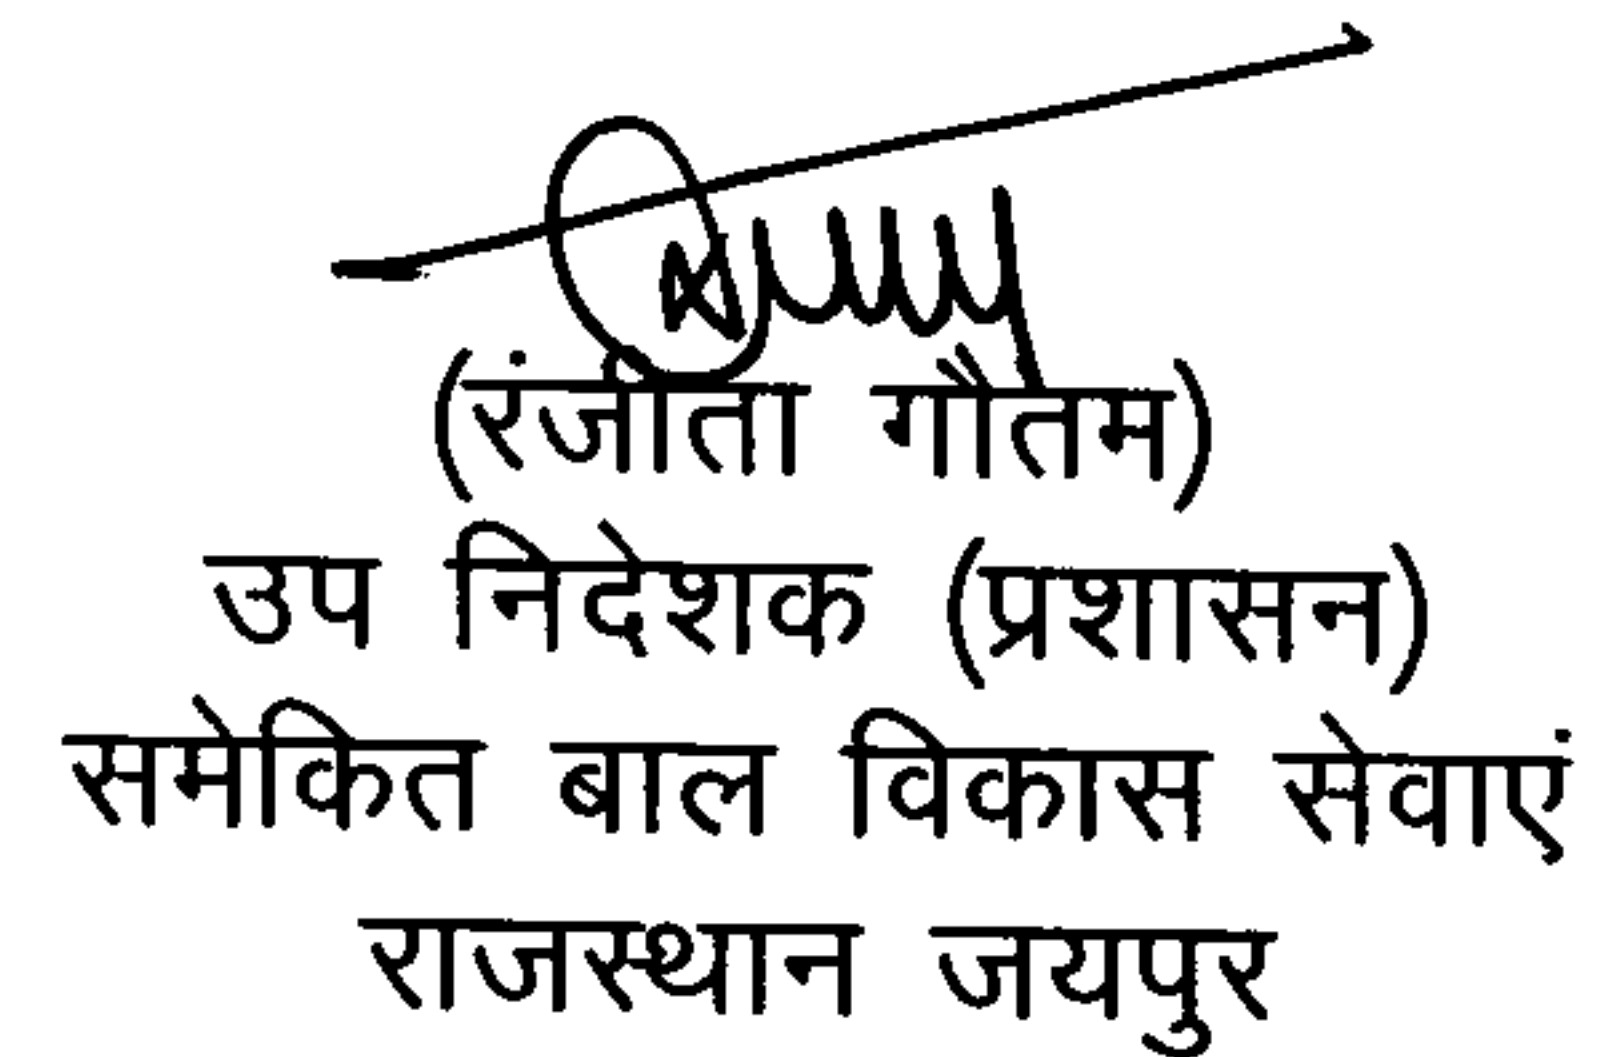 (रंजीता गौतम)
उप निदेशक (प्रशासन)
समेकित बाल विकास सेवाएं
राजस्थान जयपुर